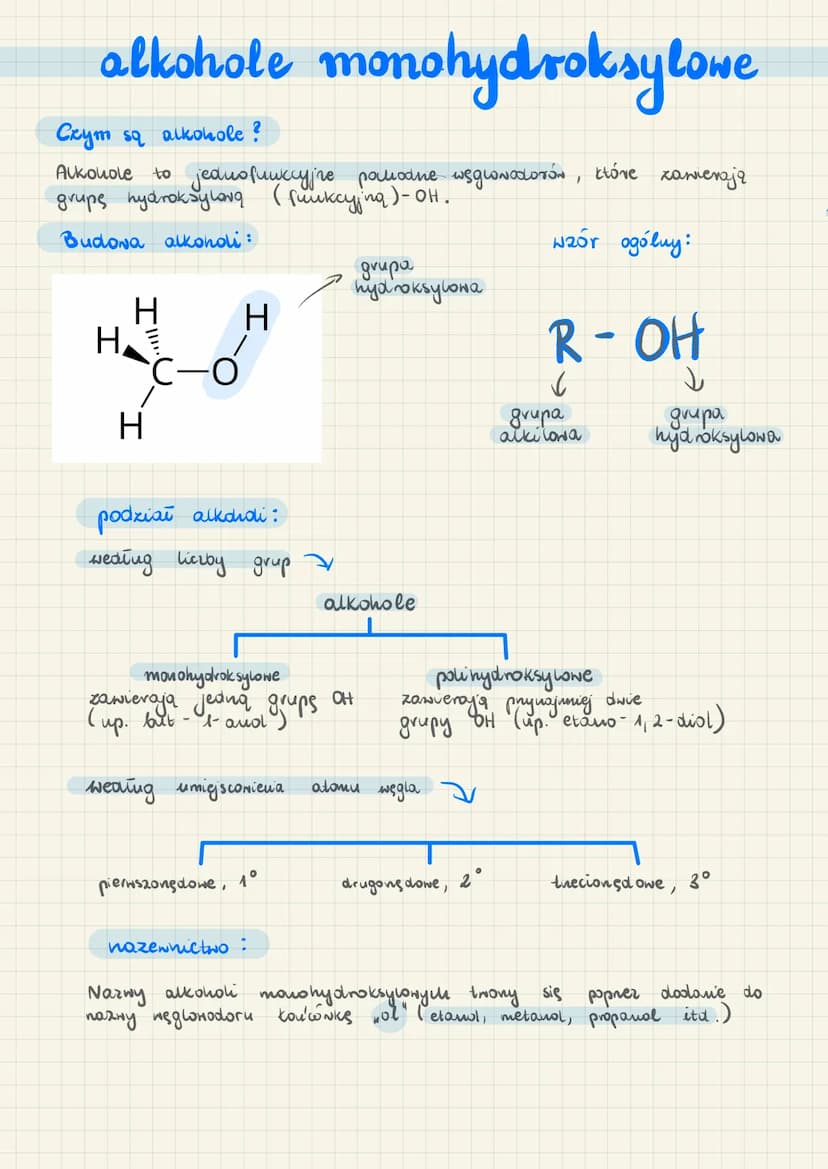 alkohole monohydroksylowe
Czym są alkohole?
Alkohole to jednofunkcyjne pochodne węglowodorów, które zawierają
grupę hydroksylową (funkcyjną) - OH.
Budowa alkoholi:
wzór ogólny:
grupa
hydroksylowa
H
H
H
C
O
H
R - OH
grupa
alkilowa
grupa
hydroksylowa
podział alkoholi:
według liczby grup
alkohole
monohydroksylowe
zawierają jedną grupę OH
(np. but - 1- anol)
polihydroksylowe
zawierają przynajmniej dwie
grupy OH (np. etano - 1,2-diol)
według umiejscowienia atomu węgla
pierwszorzędowe, 1°
drugorzędowe, 2°
trzeciorzędowe, 3°
nazewnictwo:
Nazwy alkoholi monohydroksylowych tworzy się poprzez dodanie do
nazwy węglowodoru końcówkę „ol" (etanol, metanol, propanol itd.)